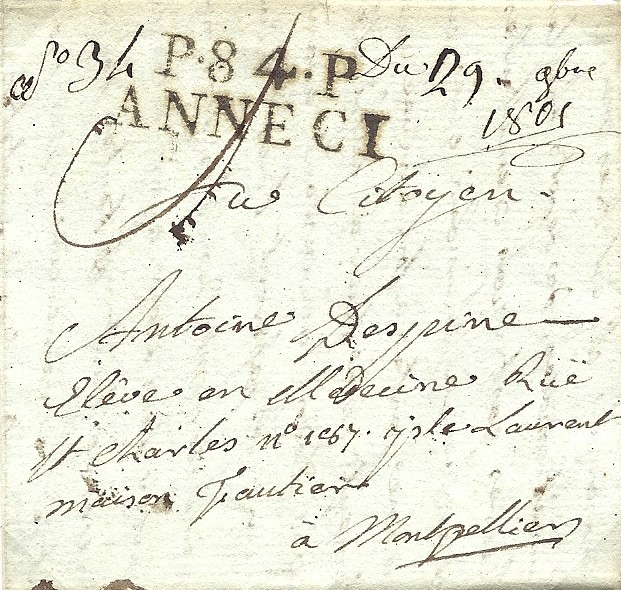 N° 34 P.84.P Du 29. 9bre
ANNECI 1801
Au Citoyen
Antoine Despine
Elêve en Médecine Rüe
St Charles n° 167. isle Laurent
maison Fautier
à Montpellier